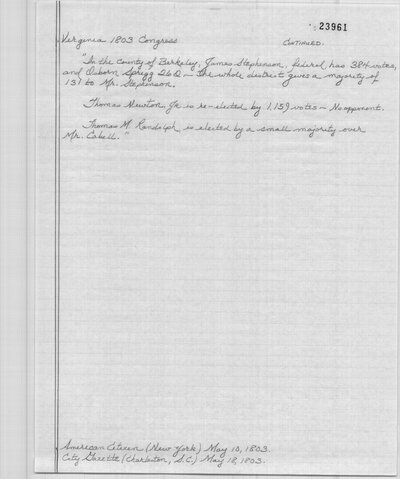 23961
Virginia 1803 Congress CONTINUED.
"In the County of Berkeley, James Stephenson, federal, has 384 votes,
and Osborn Sprigg 262 — the whole district gives a majority of
131 to Mr. Stephenson.
Thomas Newton, Jr. is re-elected by 1,159 votes — No opponent.
Thomas M. Randolph is elected by a small majority over
Mr. Cabell."
American Citizen (New York) May 10, 1803.
City Gazette (Charleston, S.C.) May 18, 1803.